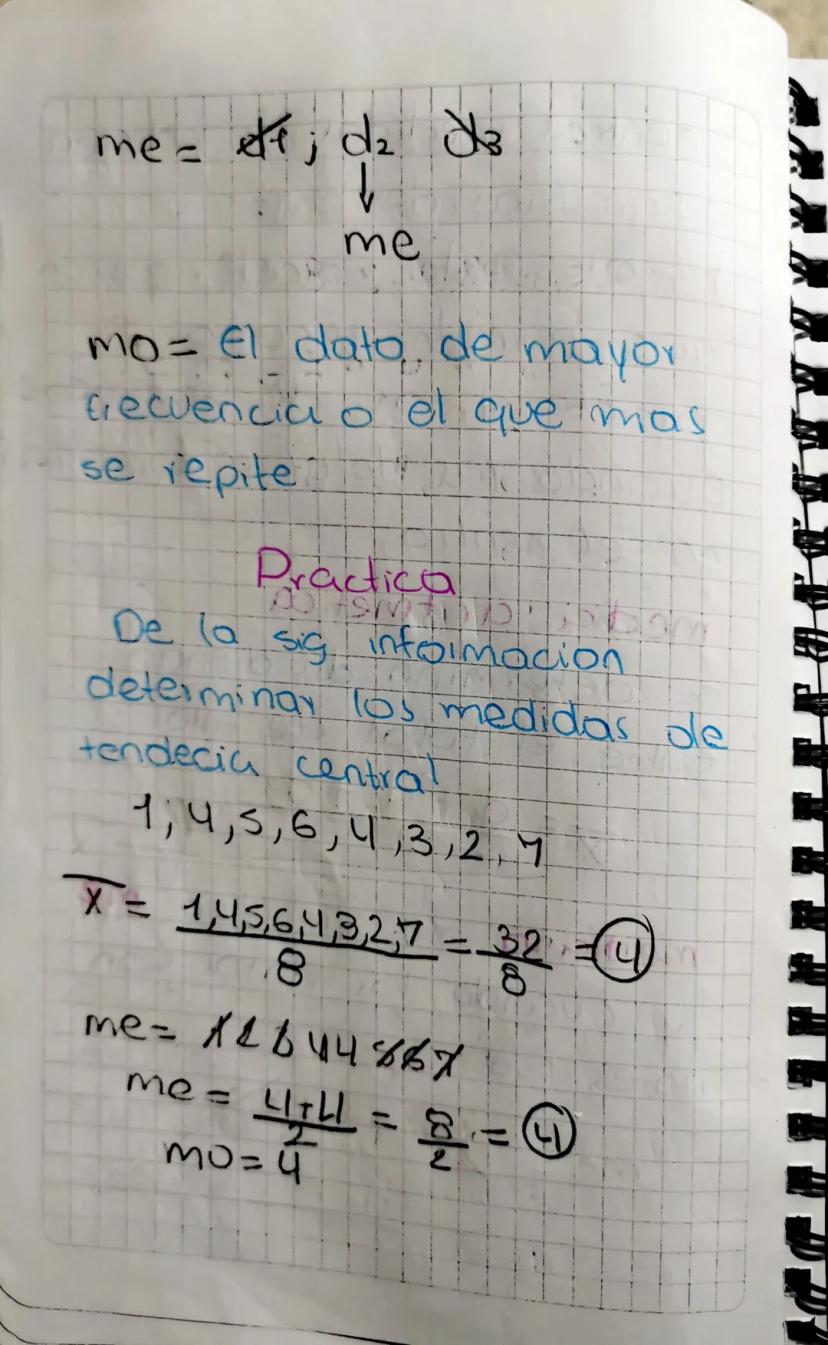 me = d1; d2 d3
↓
me
mo = El dato de mayor
frecuencia o el que mas
se repite
Practica
De la sig informacion
determinar los medidas de
tendecia central
1, 4, 5, 6, 4, 3, 2, 7
x̄ = 1,4,5,6,4,3,2,7 / 8 = 32 / 8 = 4
me = 1 2 3 4 4 5 6 7
me = 4+4 / 2 = 8 / 2 = 4
mo = 4